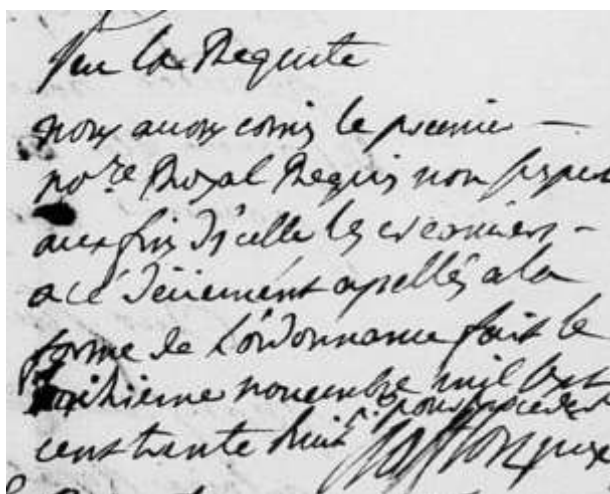 Veu la Requete
nous avons comis le premier
no.re Royal Requis non suspect
aux fins d'icelle les creanciers
a ce deuement apellés a la
forme de L'ordonnance fait le
huitieme novembre mil sept
cent trante huit